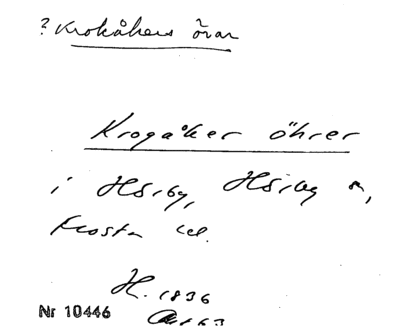 ? Krokåkers örar
Krogåker öhrer
i Hörby, Hörby sn,
Frosta hd.
H. 1836
Akt 63
Nr 10446